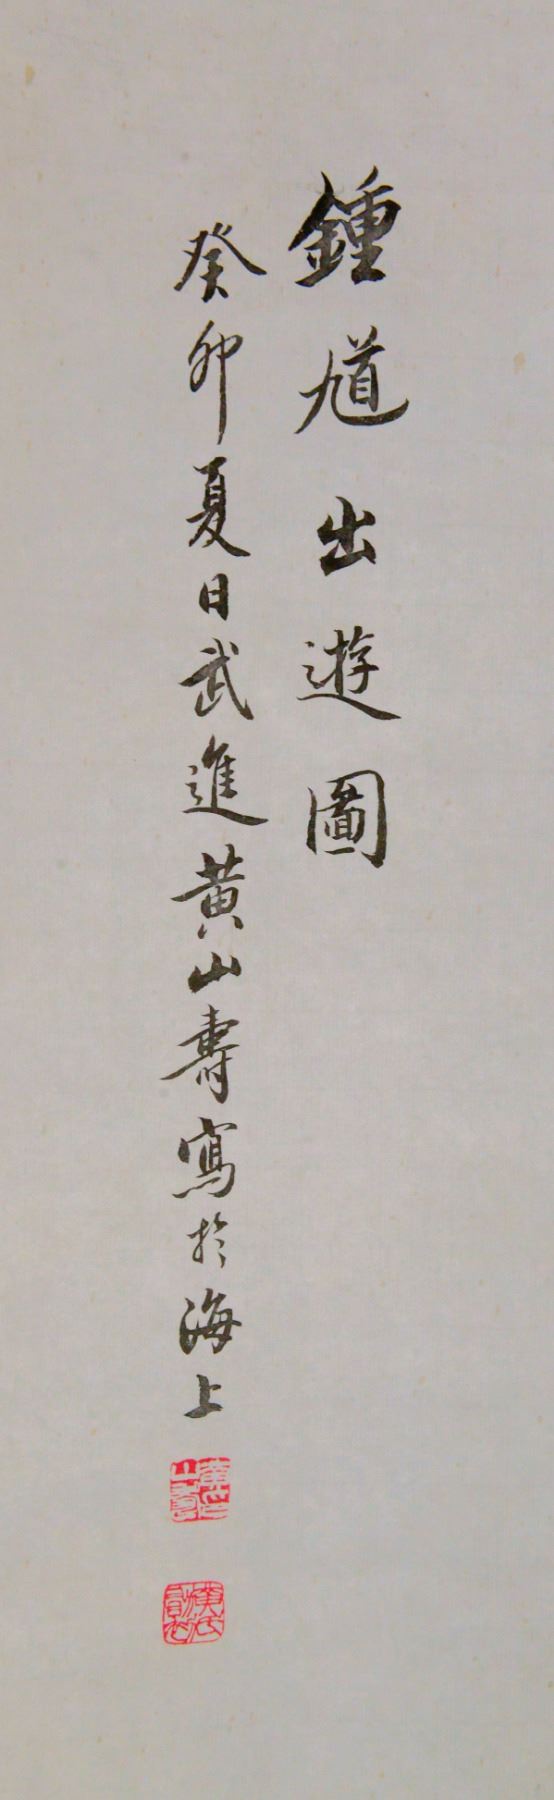 鍾馗出遊圖
癸卯夏日武進黃山壽寫於海上